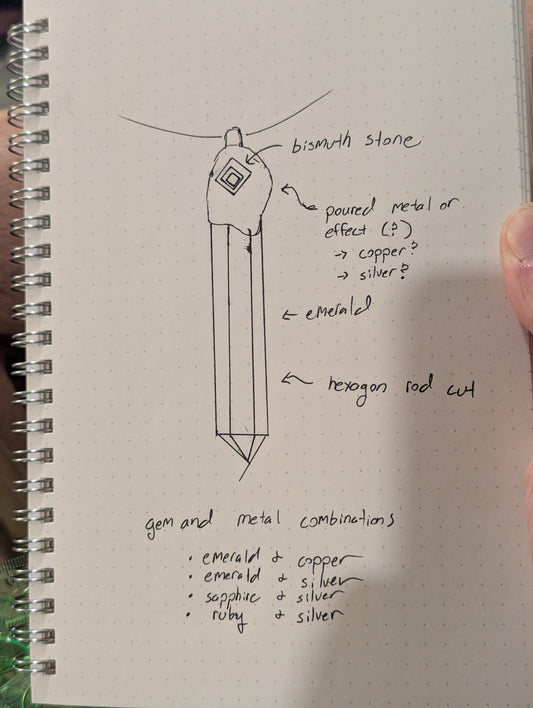 bismuth stone
poured metal or
effect (?)
→ copper?
→ silver?
← emerald
hexagon rod cut
gem and metal combinations
• emerald & copper
• emerald & silver
• sapphire & silver
• ruby & silver